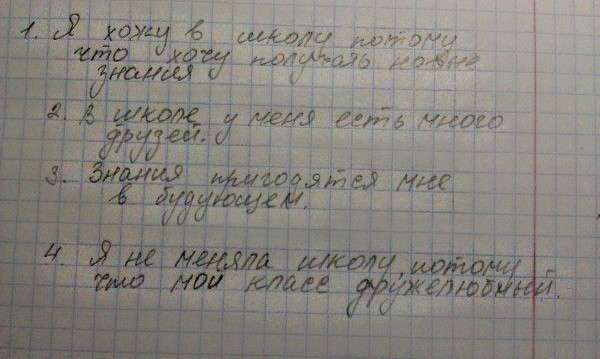 1. Я хожу в школу потому
что хочу получать новые
знания
2. В школе у меня есть много
друзей.
3. Знания пригодятся мне
в будующем.
4. Я не меняла школу, потому
что мой класс дружелюбный.